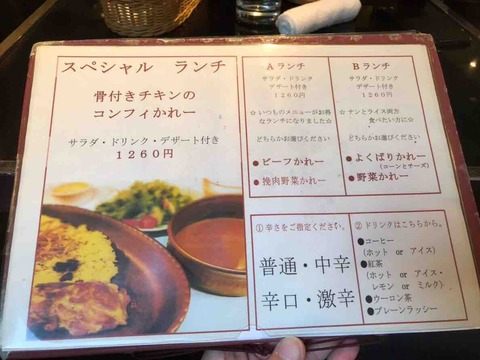 スペシャル ランチ
骨付きチキンの
コンフィかれー
サラダ・ドリンク・デザート付き
１２６０円
Ａランチ
サラダ・ドリンク
デザート付き
１２６０円
☆いつものメニューがお得
なランチになりました☆
どちらかお選びください
●ビーフかれー
●挽肉野菜かれー
Ｂランチ
サラダ・ドリンク
デザート付き
１２６０円
☆ナンとライス両方
食べたい方に☆
どちらかお選びください
●よくばりかれー
(コーンとチーズ)
●野菜かれー
①辛さをご指定ください。
普通・中辛
辛口・激辛
②ドリンクはこちらから。
●コーヒー
(ホット or アイス)
●紅茶
(ホット or アイス・
レモン or ミルク)
●ウーロン茶
●プレーンラッシー